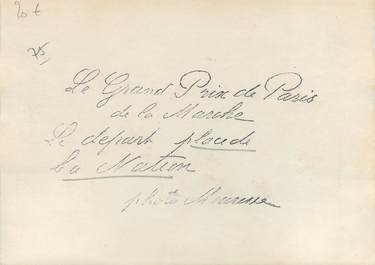 20 €
25,
Le Grand Prix de Paris
de la Marche
Le départ place de
La Nation
photo Meurisse